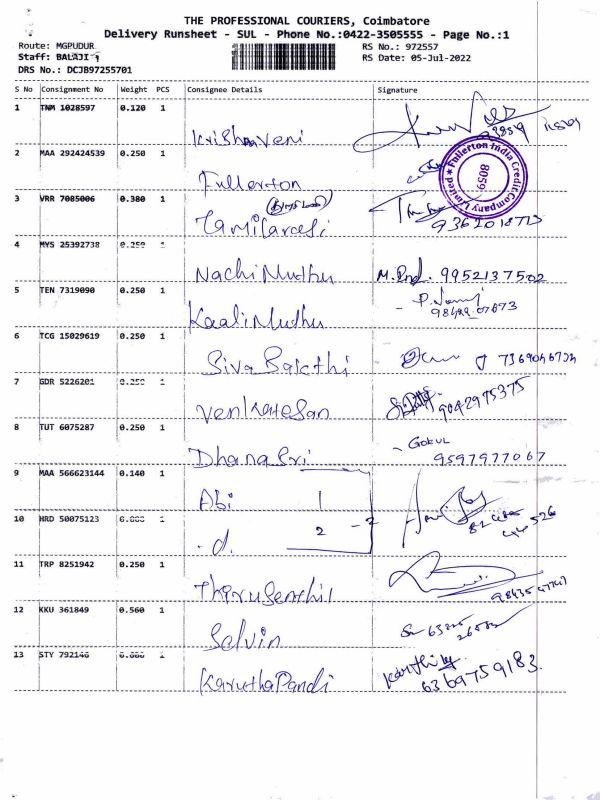 THE PROFESSIONAL COURIERS, Coimbatore
Delivery Runsheet - SUL - Phone No.:0422-3505555 - Page No.:1
Route: MGPUDUR
RS No.: 972557
Staff: BALAJI
RS Date: 05-Jul-2022
DRS No.: DCJB97255701
S No Consignment No Weight PCS Consignee Details Signature
1 TNM 1028597 0.120 1
Krishnaveni
2 MAA 292424539 0.250 1
Fullerton
Fullerton India Credit Company Limited
8059
3 VRR 7085006 0.380 1
Tamilarasi
4 MYS 25392738 0.250 1
Nachimuthu 9952137502
5 TEN 7319090 0.250 1
Kaalimuthu
6 TCG 15029619 0.250 1
Siva Sakthi
7 GDR 5226201 0.250 1
Venkatesan 9042975375
8 TUT 6075287 0.250 1
Gokul
Dhanasri 9597977067
9 MAA 566623144 0.140 1
Abi 1
10 HRD 50075123 1
.d. 2 - 2
11 TRP 8251942 0.250 1
Thirusenthil
12 KKU 361849 0.560 1
Selvin
13 STY 792146 1
KaruthaPandi 6369759183